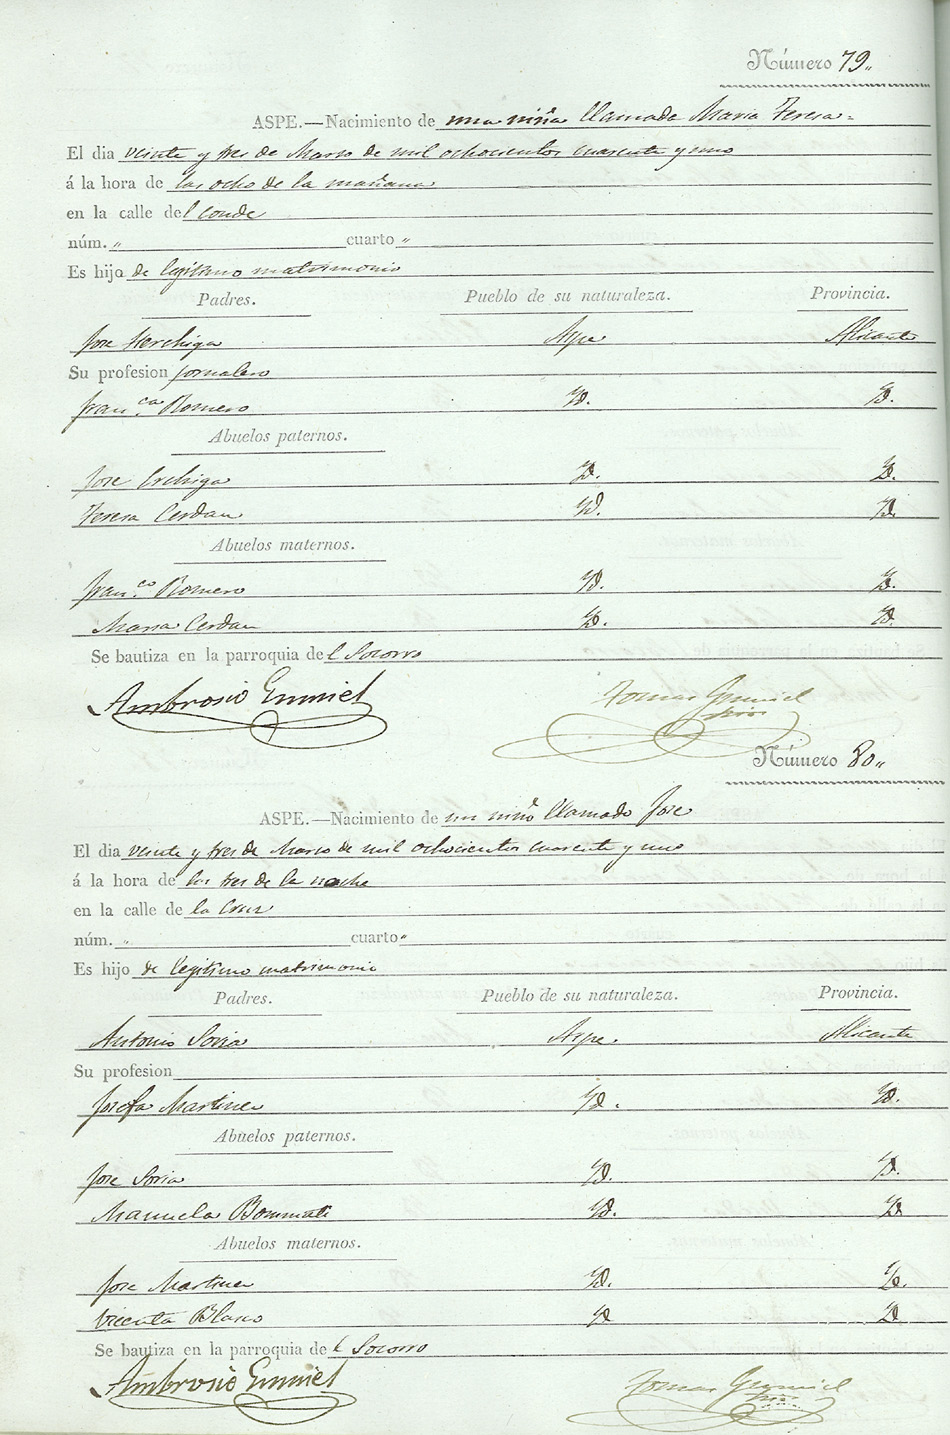 Número 79.,
ASPE.—Nacimiento de una niña llamada Maria Teresa=
El dia veinte y tres de Marzo de mil ochocientos cuarenta y uno
á la hora de las ocho de la mañana
en la calle del Conde
núm. „ cuarto „
Es hijo de legitimo matrimonio
Padres. Pueblo de su naturaleza. Provincia.
Jose Aspe Alicante
Su profesion jornalero
Fran.ca Romero Yd. Yd.
Abuelos paternos.
Jose Yd. Yd.
Teresa Cerdan Yd. Yd.
Abuelos maternos.
Fran.co Romero Yd. Yd.
Maria Cerdan Yd. Yd.
Se bautiza en la parroquia del Socorro
Ambrosio Tomas
Número 80.,
ASPE.—Nacimiento de un niño llamado Jose
El dia veinte y tres de Marzo de mil ochocientos cuarenta y uno
á la hora de las tres de la noche
en la calle de la Cruz
núm. „ cuarto „
Es hijo de legitimo matrimonio
Padres. Pueblo de su naturaleza. Provincia.
Antonio Soria Aspe Alicante
Su profesion
Josefa Martinez Yd. Yd.
Abuelos paternos.
Jose Soria Yd. Yd.
Manuela Bommati Yd. Yd.
Abuelos maternos.
Jose Martinez Yd. Yd.
Vicenta Blasco Yd Yd
Se bautiza en la parroquia del Socorro
Ambrosio Tomas